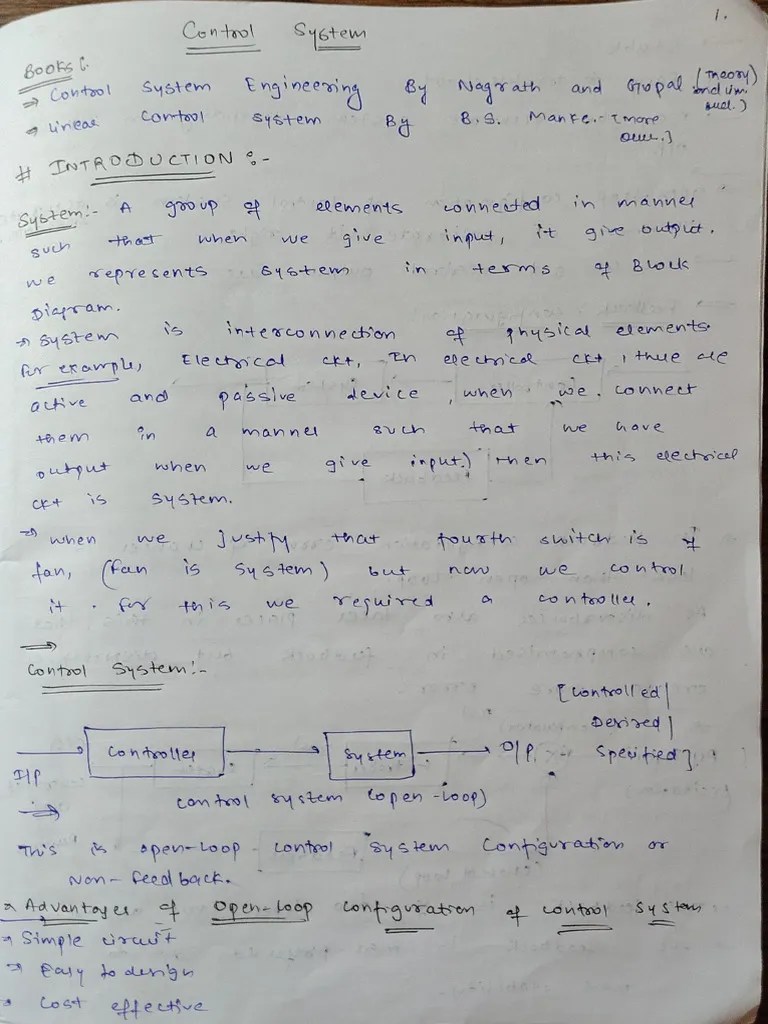 1.
Control System
Books:
→ Control System Engineering By Nagrath and Gopal (Theory)
→ Linear Control System By B.S. Manke. [more
# INTRODUCTION :-
System:- A group of elements connected in manner
such that when we give input, it give output.
we represents system in terms of Block
Diagram.
→ System is interconnection of physical elements.
For example, Electrical ckt, In electrical ckt, there are
active and passive device, when we connect
them in a manner such that we have
output when we give input.) then this electrical
ckt is system.
⇒ when we justify that fourth switch is of
fan, (fan is system) but now we control
it. For this we required a controller.
⇒
Control System:-
[Controlled|
Desired|
Specified]
I/P → Controller → System → O/P
control system (open-loop)
⇒
This is open-loop control system configuration or
Non-feedback.
→ Advantages of Open-Loop configuration of control system
→ Simple circuit
→ Easy to design
→ Cost effective